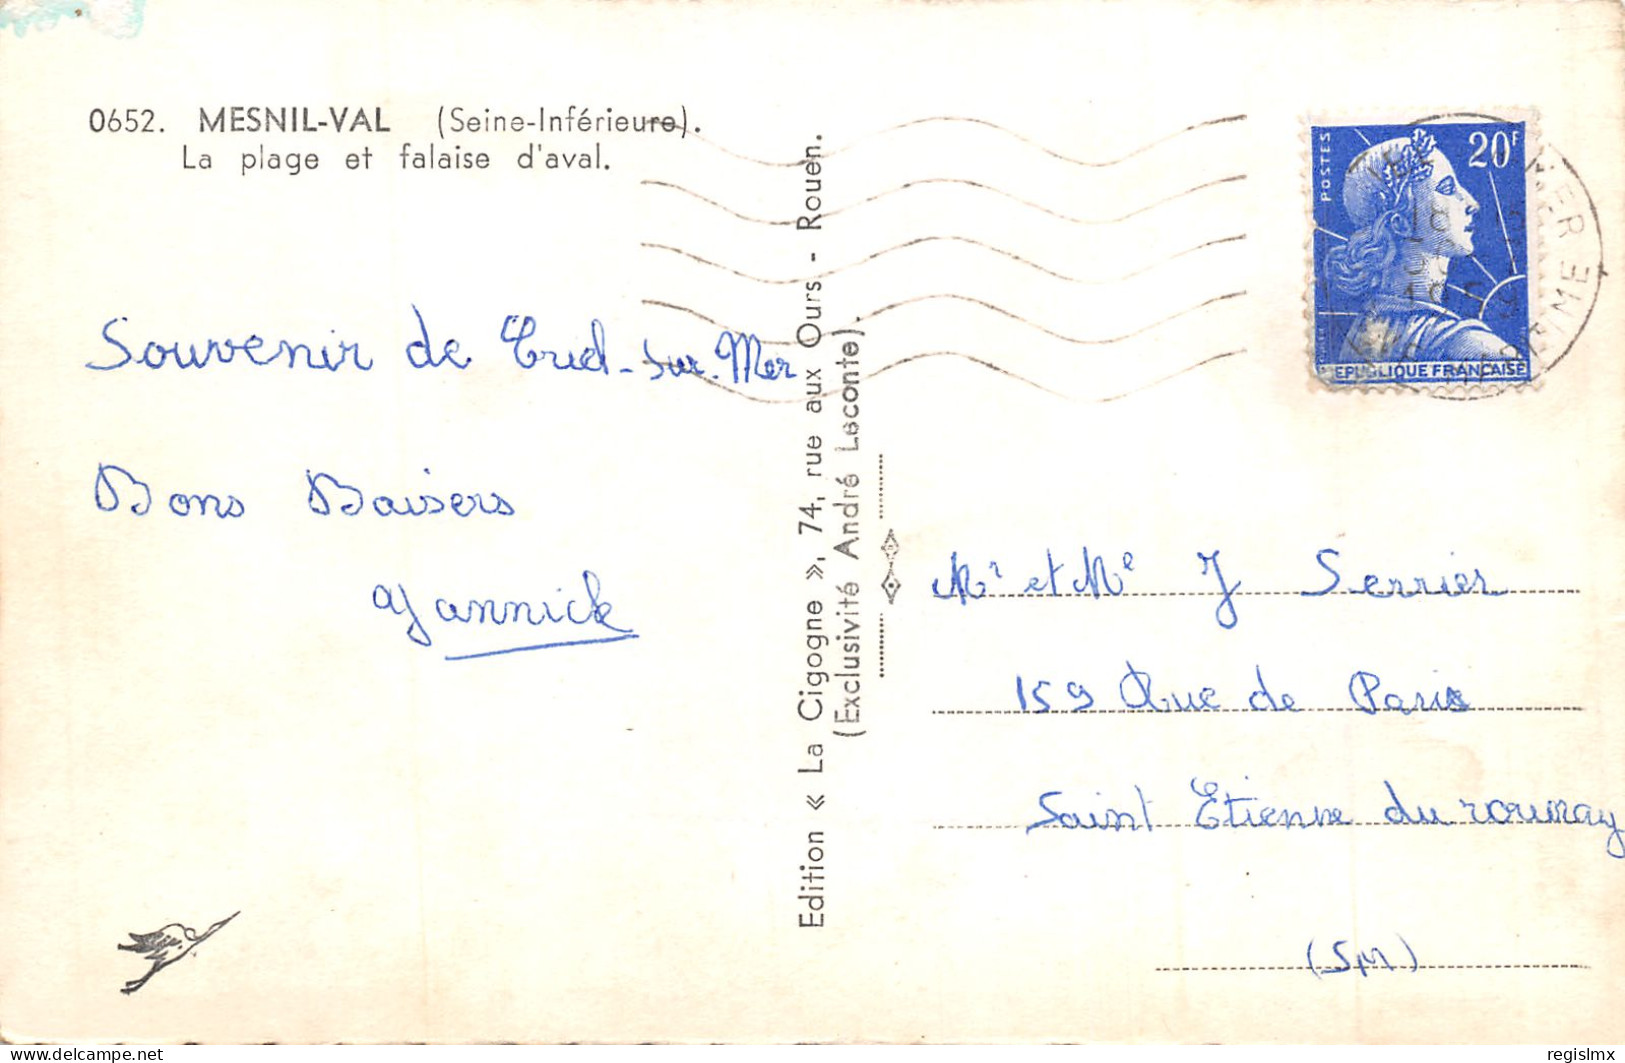 0652. MESNIL-VAL (Seine-Inférieure).
La plage et falaise d'aval.
Souvenir de Criel-sur-Mer
Bons Baisers
Yannick
Edition « La Cigogne », 74, rue aux Ours - Rouen.
(Exclusivité André Leconte).
POSTES
20F
REPUBLIQUE FRANÇAISE
MER
Mr et Me J Serrier
159 Rue de Paris
Saint Etienne du rouvray
(SM)
delcampe.net
regislmx